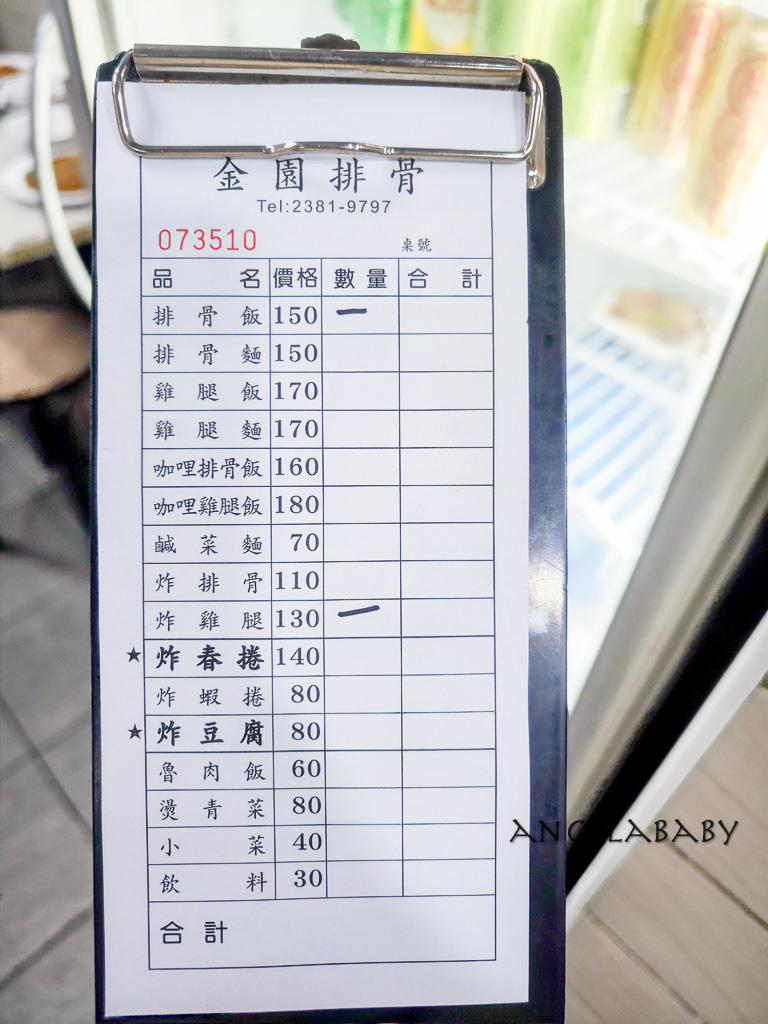 金園排骨
Tel:2381-9797
073510 桌號
品名 價格 數量 合計
排骨飯 150 一
排骨麵 150
雞腿飯 170
雞腿麵 170
咖哩排骨飯 160
咖哩雞腿飯 180
鹹菜麵 70
炸排骨 110
炸雞腿 130 一
★ 炸春捲 140
炸蝦捲 80
★ 炸豆腐 80
魯肉飯 60
燙青菜 80
小菜 40
飲料 30
合計
ANGELABABY